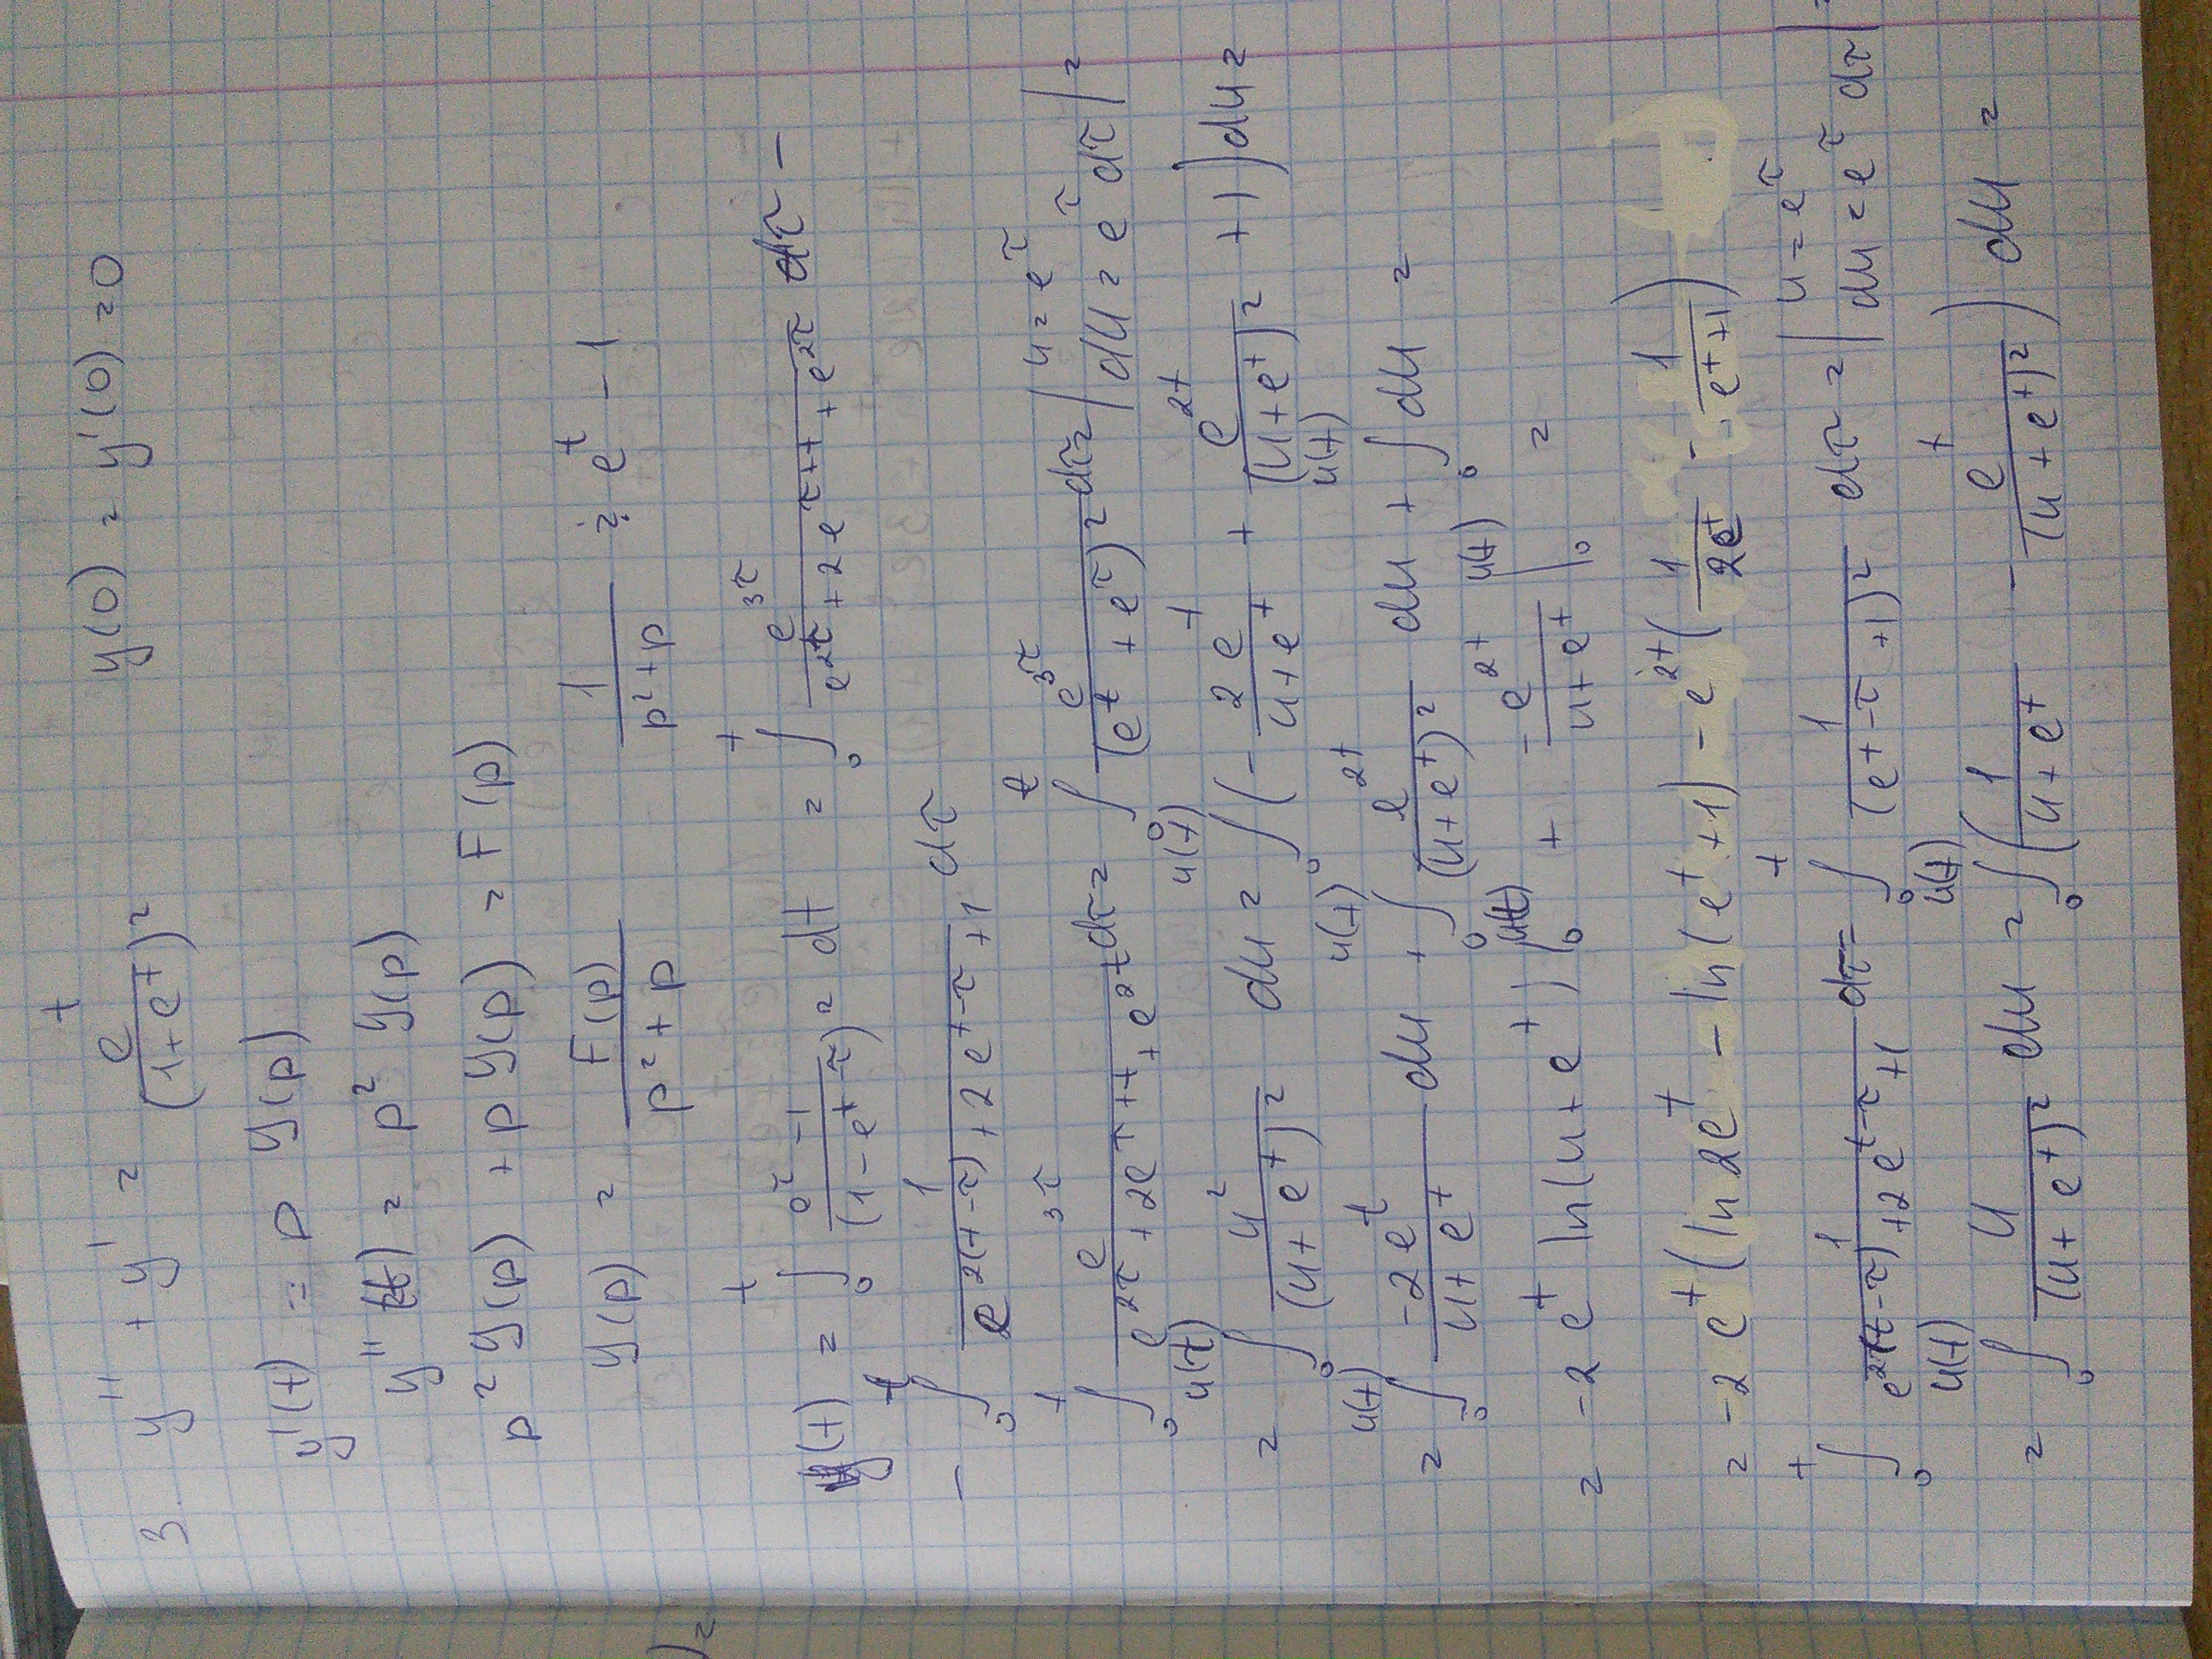 3. y'' + y' = e^t/(1+e^t)^2 y(0) = y'(0) = 0
y'(t) = p y(p)
y'' (t) = p^2 y(p)
p^2 y(p) + p y(p) = F(p)
y(p) = F(p)/(p^2 + p) 1/(p^2+p) ÷ e^t - 1
y(t) = ∫_0^t (e^τ - 1)/(1 - e^{t-τ})^2 dt = ∫_0^t e^{3τ}/(e^{2t} + 2e^{τ+t} + e^{2τ}) dτ -
- ∫_0^t 1/(e^{2(t-τ)} + 2e^{t-τ} + 1) dτ
∫_0^t e^{3τ}/(e^{2τ} + 2e^{τ+t} + e^{2t}) dτ = ∫_0^t e^{3τ}/(e^t + e^τ)^2 dτ = | u = e^τ
du = e^τ dτ | =
= ∫_0^{u(t)} u^2/(u + e^t)^2 du = ∫_0^{u(t)} (- 2e^t/(u+e^t) + e^{2t}/(u+e^t)^2 + 1) du =
= ∫_0^{u(t)} -2e^t/(u+e^t) du + ∫_0^{u(t)} e^{2t}/(u+e^t)^2 du + ∫_0^{u(t)} du =
= -2e^t ln(u+e^t) |_0^{u(t)} + - e^{2t}/(u+e^t) |_0^{u(t)} =
= -2e^t (ln 2e^t - ln(e^t+1) - e^{2t} (1/2e^t - 1/(e^t+1))
∫_0^t 1/(e^{2(t-τ)} + 2e^{t-τ} + 1) dτ = ∫_0^t 1/(e^{t-τ} + 1)^2 dτ = | u = e^τ
du = e^τ dτ | =
= ∫_0^{u(t)} u/(u+e^t)^2 du = ∫_0^{u(t)} (1/(u+e^t) - e^t/(u+e^t)^2) du =